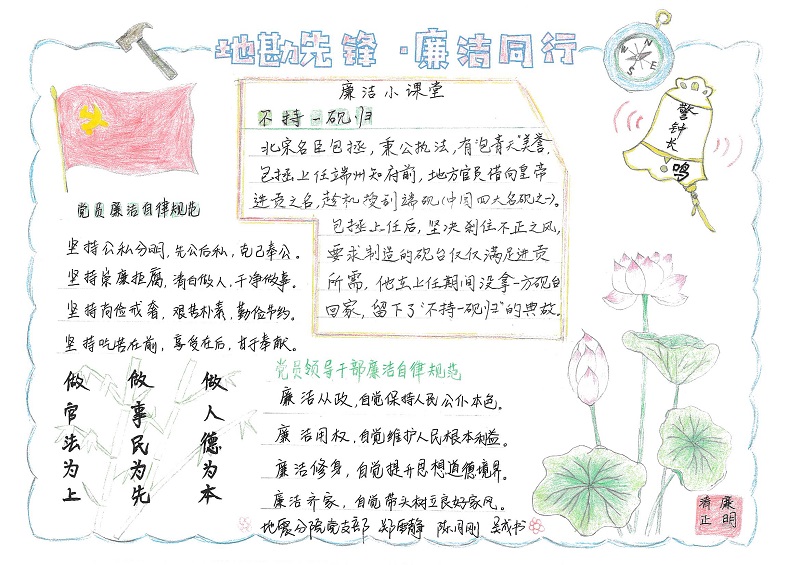 地勘先锋·廉洁同行
廉洁小课堂
不持一砚归
北宋名臣包拯，秉公执法，有"包青天"美誉，
包拯上任端州知府前，地方官员借向皇帝
进贡之名，趁机搜刮端砚（中国四大名砚之一）。
包拯上任后，坚决刹住不正之风，
要求制造的砚台仅仅满足进贡
所需，他在上任期间没拿一方砚台
回家，留下了"不持一砚归"的典故。
警钟长鸣
党员廉洁自律规范
坚持公私分明，先公后私，克己奉公。
坚持崇廉拒腐，清白做人，干净做事。
坚持尚俭戒奢，艰苦朴素，勤俭节约。
坚持吃苦在前，享受在后，甘于奉献。
做人德为本
做事民为先
做官法为上
党员领导干部廉洁自律规范
廉洁从政，自觉保持人民公仆本色。
廉洁用权，自觉维护人民根本利益。
廉洁修身，自觉提升思想道德境界。
廉洁齐家，自觉带头树立良好家风。
地震分院党支部 郑雪静 陈月刚
廉明
清正
N
E
S
W